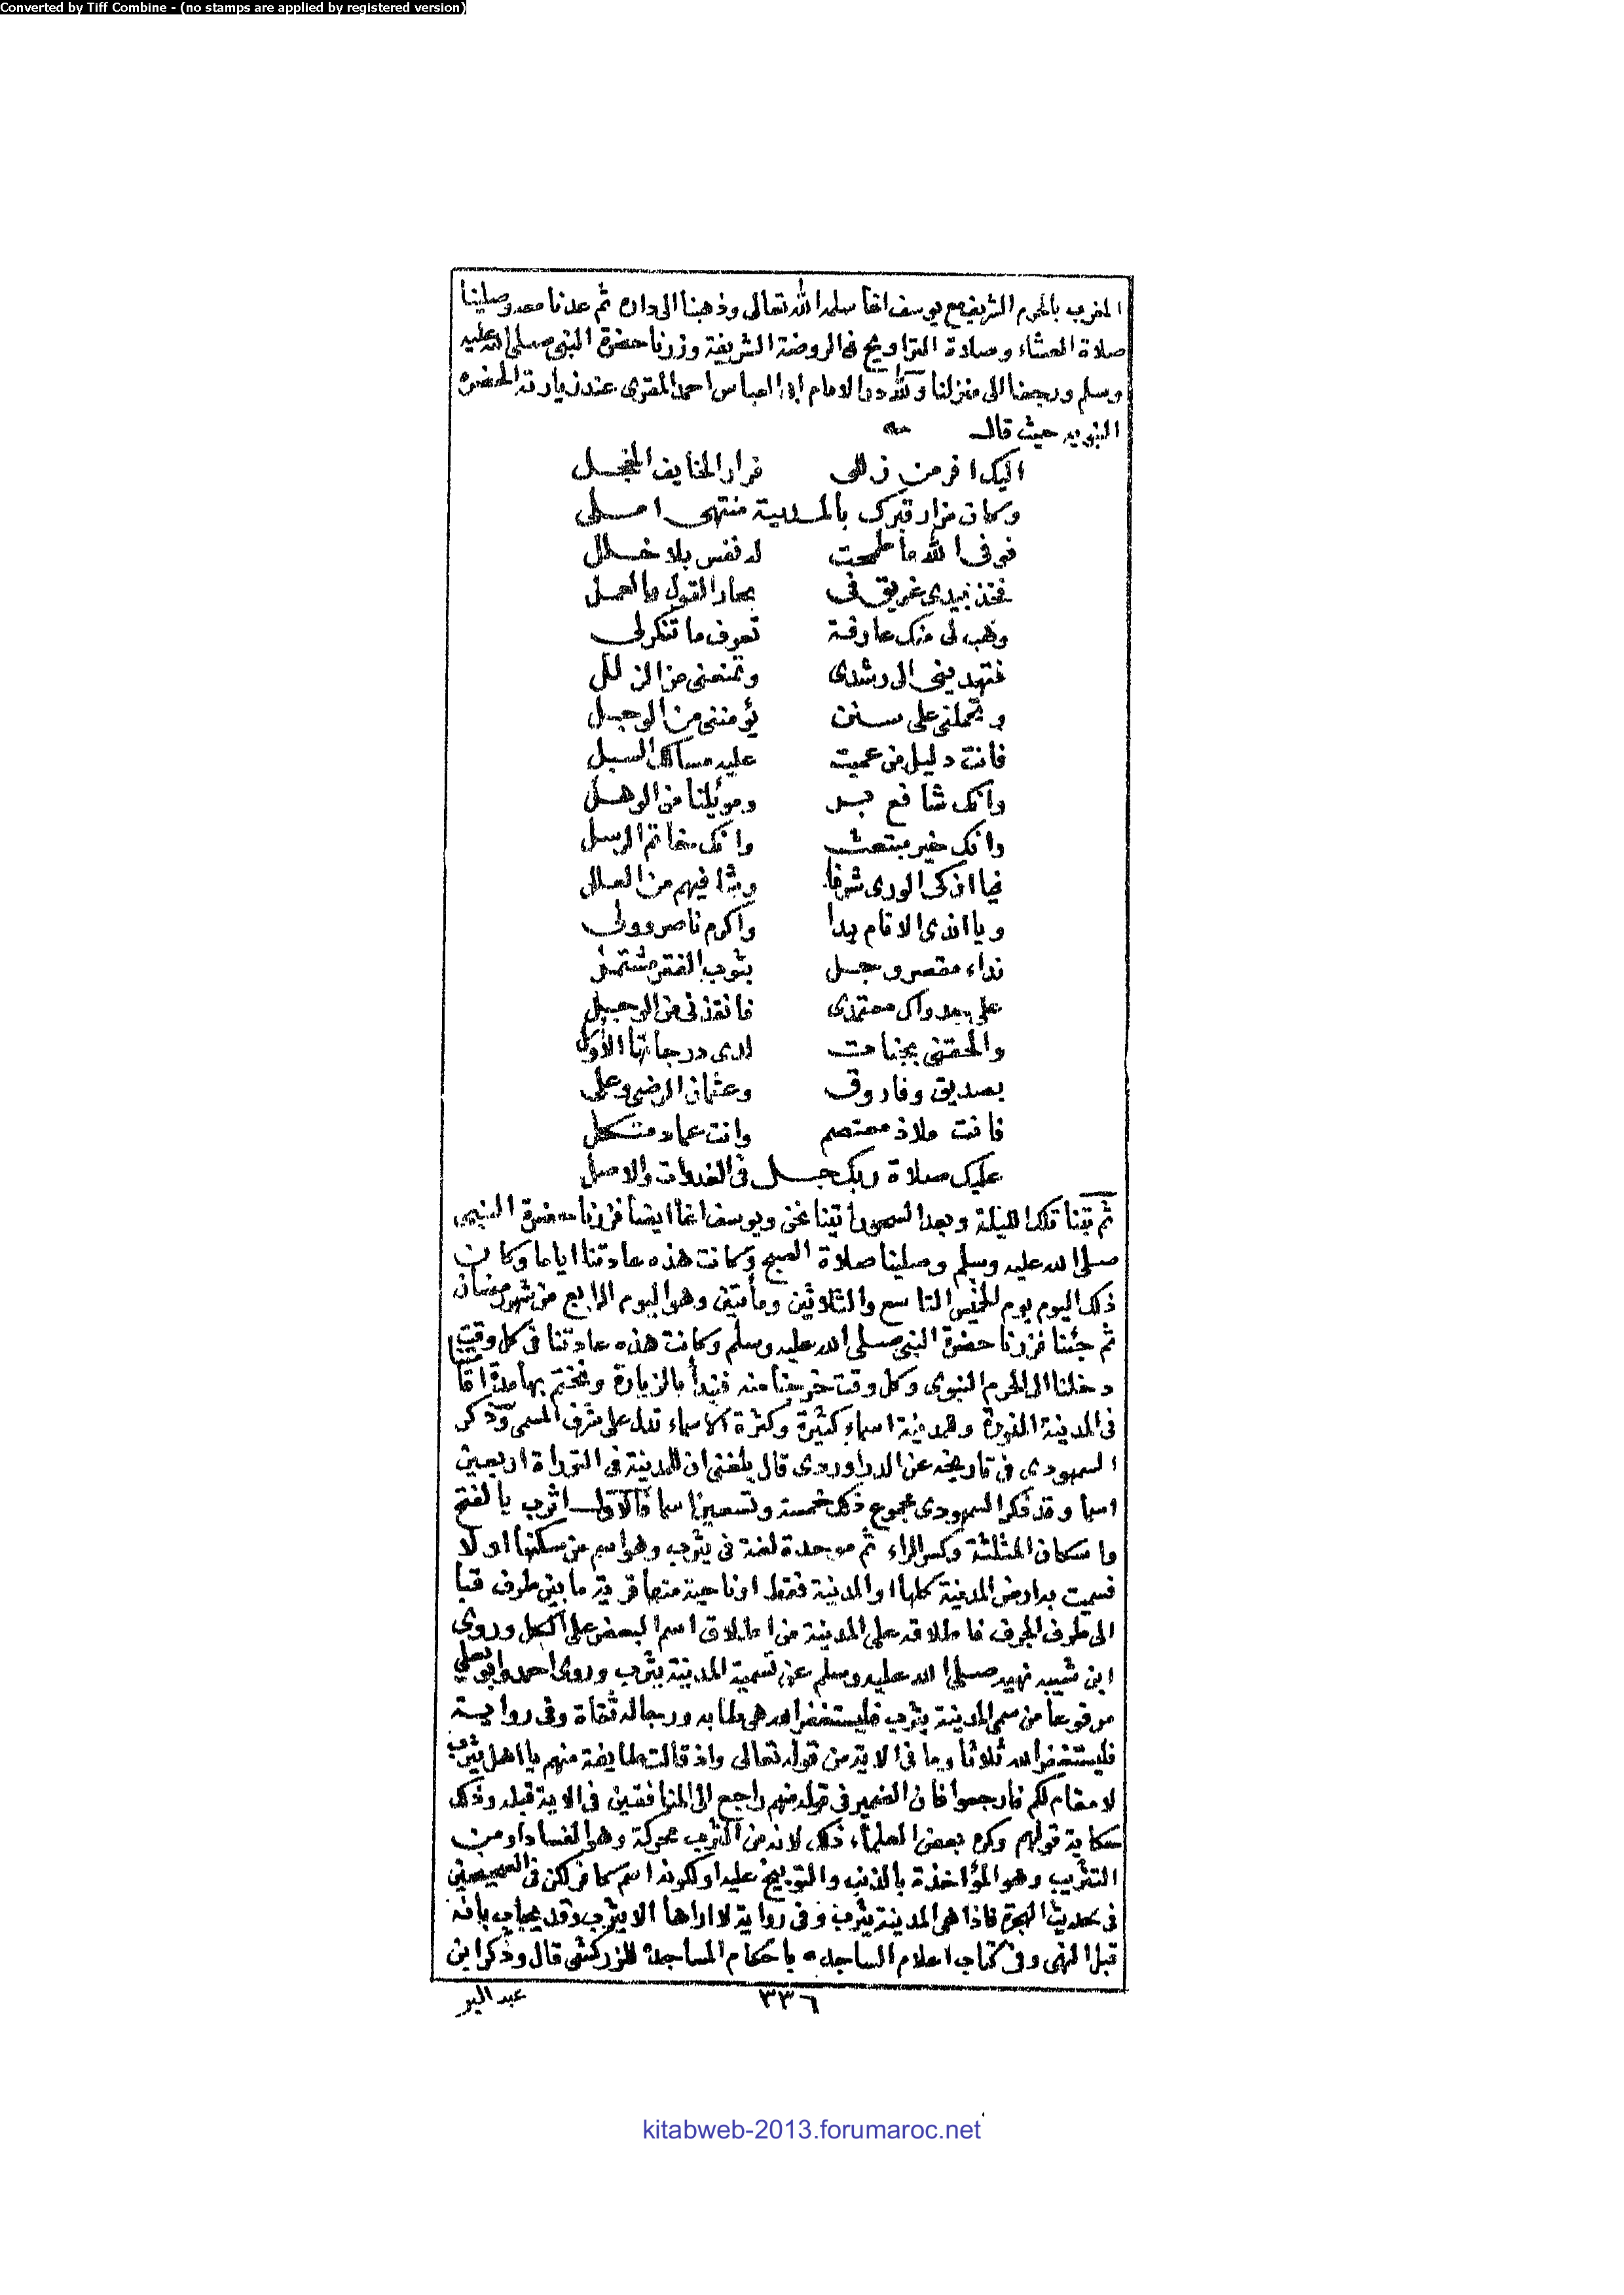 Converted by Tiff Combine - (no stamps are applied by registered version)
المغرب بالحرم الشريف مع يوسف اغا سلمه الله تعالى وذهبنا الى داره ثم عدنا معه وصلينا
صلاة العشاء وصلاة التراويح في الروضة الشريفة وزرنا حضرة النبي صلى الله عليه
وسلم ورجعنا الى منزلنا ولله در الامام ابي العباس احمد المقري عند زيارته الحضرة
النبويه حيث قال
اليك افر من زللى فرار الخايف الخجل
وكان مزار قبرك بالمدينة منتهى املى
فوفى الله ما طمحت له نفس بلا خلل
فخذ بيدى غريق فى بحار القول والعمل
وهب لى منك عارفة تعرف ما تنكر لى
فتهدينى الى رشدى وتمنعنى من الزلل
وتحملنى على سنن يؤمننى من الوجل
فانت دليل من عميت عليه مسالك السبل
وانك شافع بر وموئلنا من الوهل
وانك خير مبتعث وانك خاتم الرسل
فيا ازكى الورى شرفا وشافيهم من العلل
ويا اندى الانام يدا واكرم ناصر وولى
نداء مقصر وجل بثوب الفقر مشتمل
على جدواك معتمدى فانقذنى من الوجل
والحقنى بجنات لدى درجاتها الأول
بصديق وفاروق وعثمان الرضى وعلى
فانت ملاذ معتصم وانت عماد متكل
عليك صلاة ربك جل فى الغدوات والاصل
ثم بتنا تلك الليلة وبعد السحور أتينا نحن ويوسف اغا ايضا فزرنا حضرة النبي
صلى الله عليه وسلم وصلينا صلاة الصبح وكانت هذه عادتنا اياما وكان
ذلك اليوم يوم الخميس التاسع والثلاثين ومأتين وهو اليوم الرابع من شهر رمضان
ثم جئنا فزرنا حضرة النبي صلى الله عليه وسلم وكانت هذه عادتنا فى كل وقت
دخلنا الى الحرم النبوى وكل وقت خرجنا منه فنبدأ بالزيارة ونختم بها مدة اقامتنا
فى المدينة المنورة وللمدينة اسماء كثيرة وكثرة الاسماء تدل على شرف المسمى وذكر
السمهودى فى تاريخه عن الدراوردى قال بلغنى ان للمدينة فى التوراة اربعين
اسما وقد ذكر السمهودى مجموع ذلك خمسة وتسعين اسما فالاول اثرب بالفتح
واسكان المثلثة وكسر الراء ثم موحدة لغة فى يثرب وهو اسم من سكنها اولا
فسميت به ارض المدينة كلها او المدينة فقط او ناحية منها قرية ما بين طرف قبا
الى طرف الجرف فاطلاقه على المدينة من اطلاق اسم البعض على الكل وروى
ابن شيبه نهيه صلى الله عليه وسلم عن تسمية المدينة يثرب وروى احمد وابو يعلي
مرفوعا من سمى المدينة يثرب فليستغفر الله هى طابه ورجاله ثقاة وفى رواية
فليستغفر الله ثلاثا وما فى الاية من قوله تعالى واذ قالت طايفة منهم يا اهل يثرب
لا مقام لكم فارجعوا فان الضمير فى قوله منهم راجع الى المنافقين فى الاية قبله وذلك
حكاية قولهم وكره بعض العلماء ذلك لانه من الثرب محركة وهو الفساد او من
التثريب وهو المؤاخذة بالذنب والتوبيخ عليه او لكونه اسم كافر لكن فى الصحيحين
فى حديث الهجرة فاذا هى المدينة يثرب وفى رواية لا اراها الا يثرب وقد يجاب بانه
قبل النهى وفى كتاب اعلام الساجد باحكام المساجد للزركشى قال وذكر ابن
٣٣٦
عبد البر
kitabweb-2013.forumaroc.net